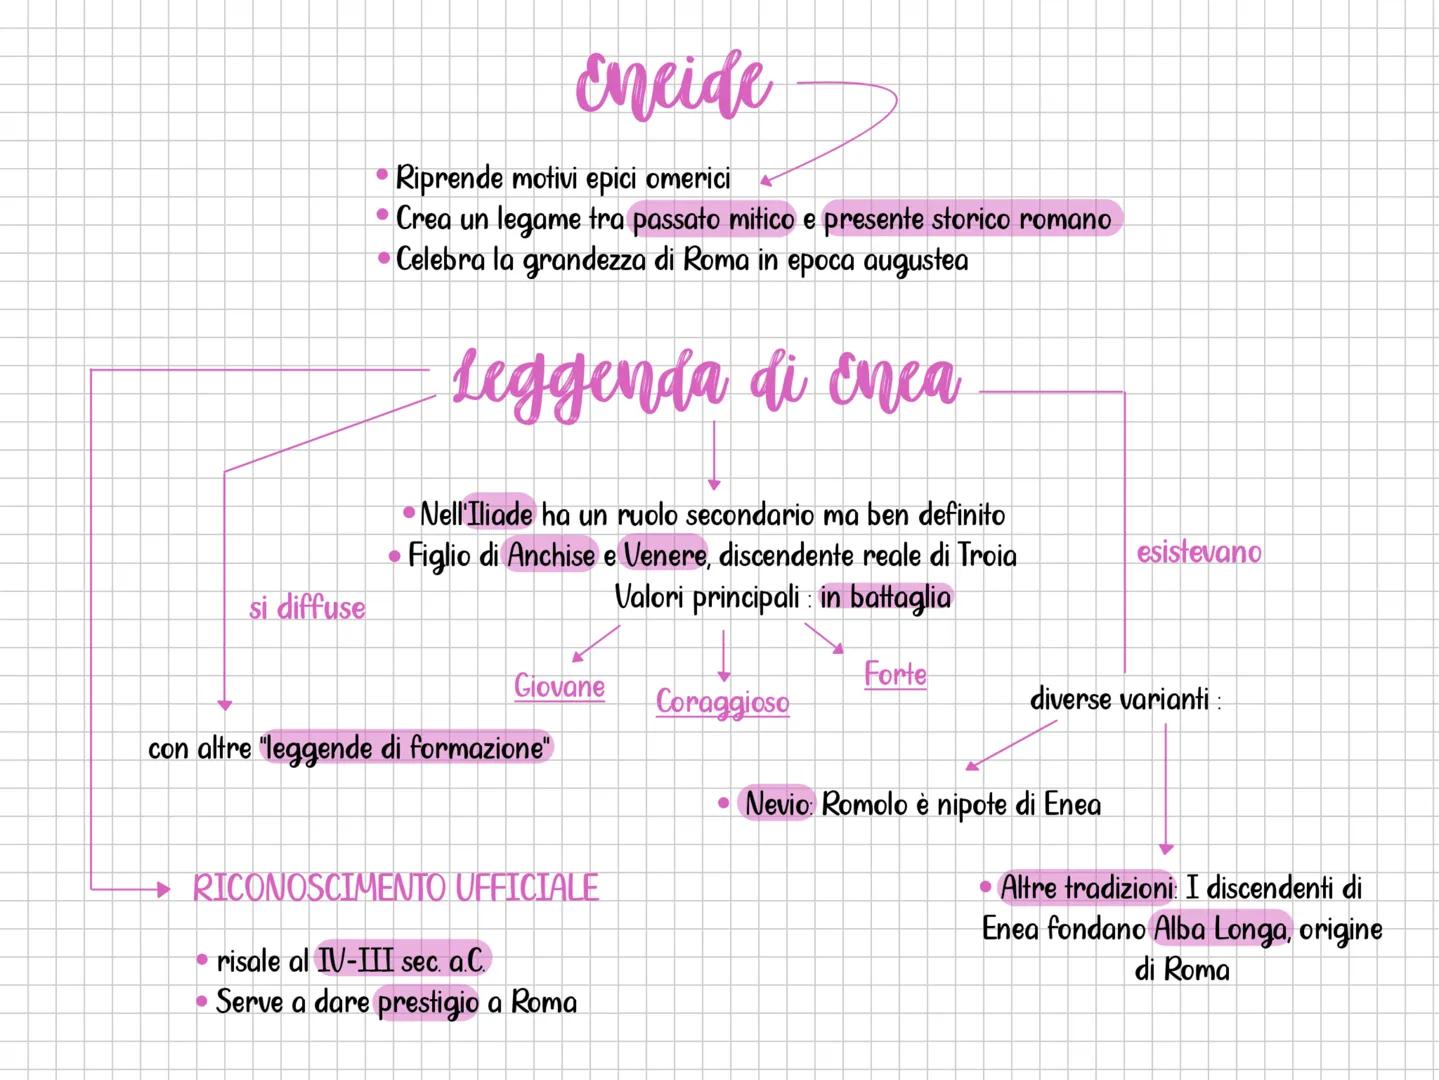 Eneide
• Riprende motivi epici omerici
• Crea un legame tra passato mitico e presente storico romano
• Celebra la grandezza di Roma in epoca augustea
Leggenda di Enea
• Nell'Iliade ha un ruolo secondario ma ben definito
• Figlio di Anchise e Venere, discendente reale di Troia
Valori principali : in battaglia
Giovane
Coraggioso
Forte
si diffuse
con altre "leggende di formazione"
esistevano
diverse varianti :
• Nevio: Romolo è nipote di Enea
• Altre tradizioni: I discendenti di
Enea fondano Alba Longa, origine
di Roma
RICONOSCIMENTO UFFICIALE
• risale al IV-III sec. a.C.
• Serve a dare prestigio a Roma